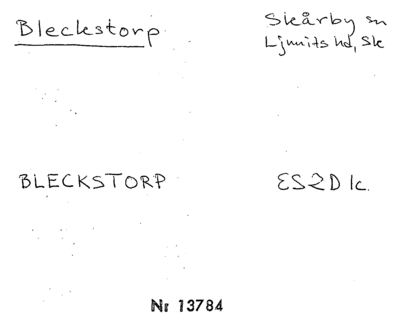 Bleckstorp
Skårby sn
Ljunits hd, Sk
BLECKSTORP
ES2D1c.
Nr 13784